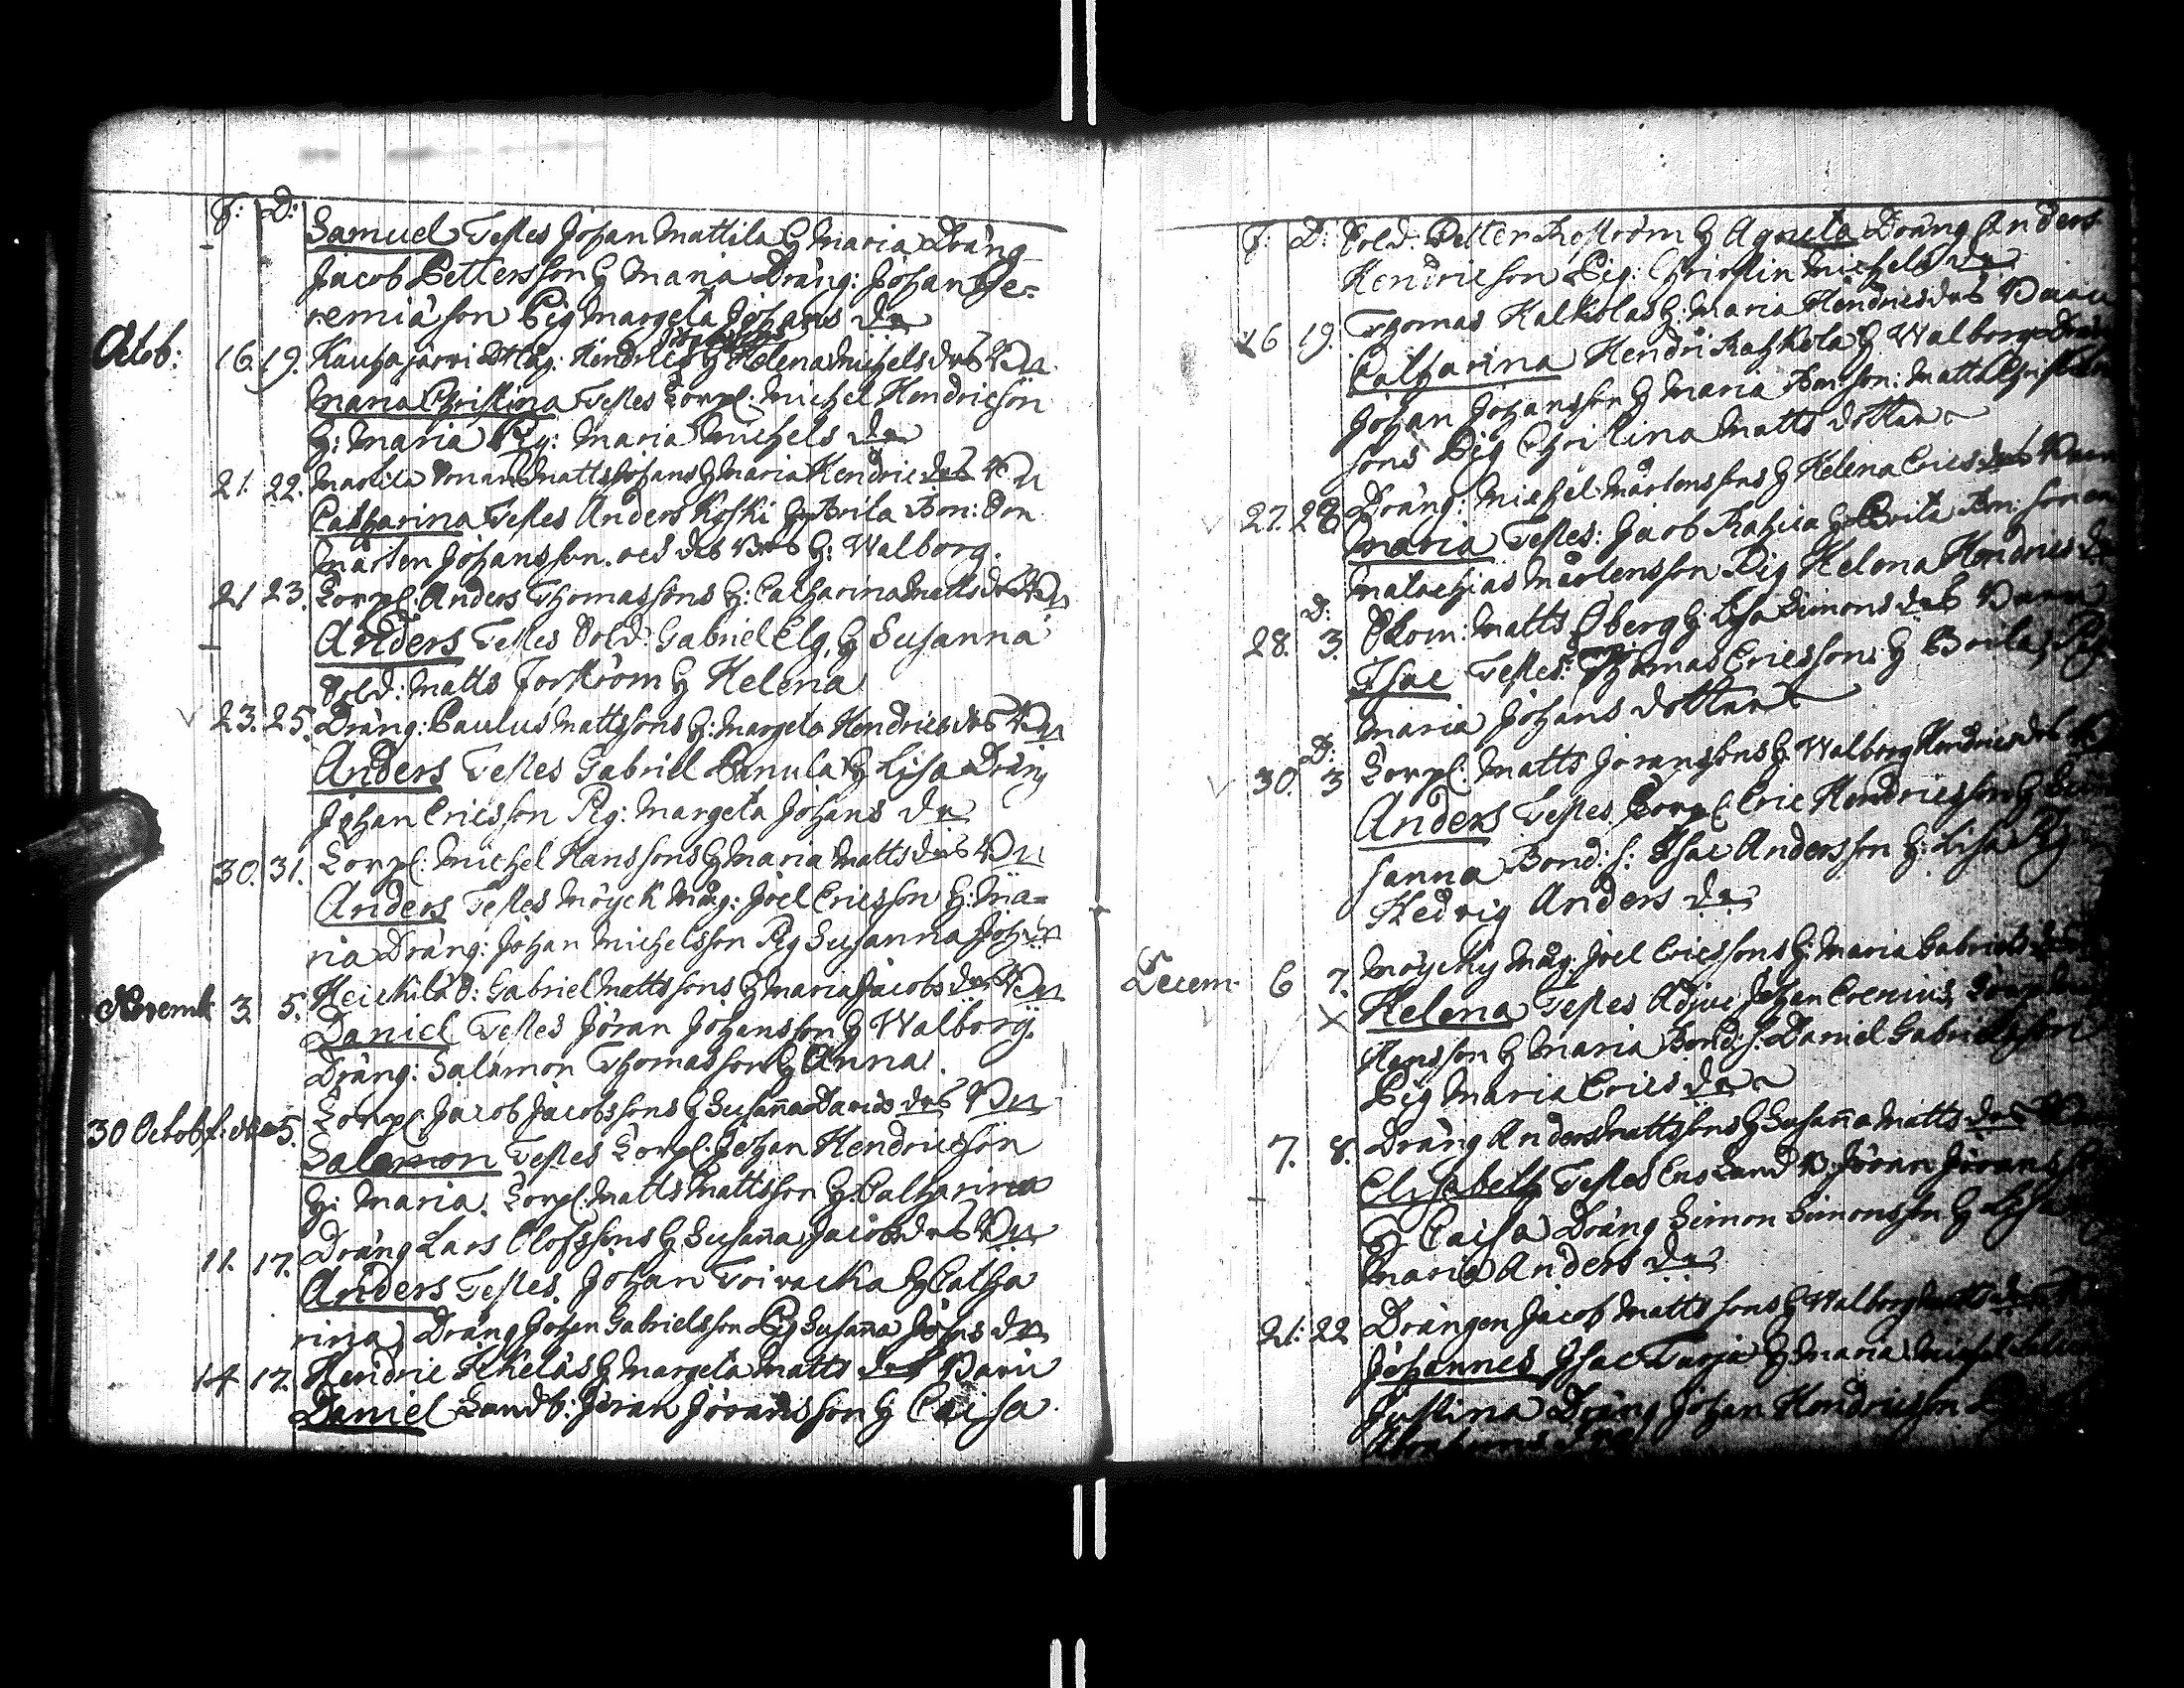 f: D:
Samuel Testes Johan Mattila H Maria Dräng
Jacob Pettersson H Maria Dräng: Johan Je=
remiäson Pig Margeta Johans dr
Octob: 16. 19. Kauhajärvi Måg: Hendrics H Helena Michels drs Bn
Maria Christina Testes Corpl: Michel Hendricson
H: Maria Pig: Maria Michels dr
21. 22. Matts Johans H Maria Hendric drs Bn
Catharina Testes Anders Koski H Brita Bon: Son
Mårten Johansson H: Walborg.
21 23. Corpl: Anders Thomassons H: Catharina Matts drs Bn
Anders Testes Sold: Gabriel Elg, H Susanna
Sold: Matts Forström H Helena
23. 25. Dräng: Paulus Mattssons H: Margeta Hendrics drs Bn
Anders Testes Gabriel Panula H Lisa Dräng
Johan Ericsson Pig: Margeta Johans dr
30. 31. Corpl: Michel Hanssons H Maria Matts drs Bn
Anders Testes Möyck Måg: Joel Ericsson H: Ma=
ria Dräng: Johan Michelsson Pig Susanna Joh: dr
Novemb 3. 5. Heickilä B: Gabriel Mattssons H Maria Jacobs drs Bn
Daniel Testes Jöran Johansson H Walborg.
Dräng: Salomon Thomasson H Anna.
30 Octob f: 5. Corpl Jacob Jacobssons H Susanna Davids drs Bn
Salomon Testes Corpl: Johan Hendricsson
H: Maria. Corpl: Matts Mattsson H: Catharina
11. 17. Dräng Lars Olofssons H Susanna Jacobs drs Bn
Anders Testes Johan Toivacka H Catha
rina, Dräng Johan Gabrielsson Pig Susanna Johs dr
14 17. Hendric H Margeta Matts drs Barn
Daniel Landb: Jöran Jöransson H Caisa
f: D: Sold: Petter H Agneta Dräng Anders
Hendricson Pig: Christin Michels dr
16 19. Thomas Kalkolas H: Maria Hendrics drs Barn
Catharina Hendr: H Walborg Dräng
Johan Johansson H Maria Bon: son: Matts
sons Pig Christina Matts dotter
27. 28 Dräng: Michel Mårtenssons H Helena Erics drs Barn
Maria Testes: Jacob H Brita Bon: sonen
Malachias Mårtensson Pig Helena Hendrics dr
D:
28. 3. Matts Öberg H: Lisa Simons drs Barn
Isac Testes: Thomas Ericsson H Brita, Pig
Maria Johans dotter
D:
30. 3 Corpl: Matts Jöranssons H: Walborg Hendrics drs
Anders Testes Corpl: Eric Hendricsson H Su
sanna Bond: s: Isac Andersson H: Lisa Pig
Hedvig Anders dr
Decem. 6 7. Möycky Måg: Joel Ericssons H: Maria Gabriels drs
Helena Testes Johan
Hansson H Maria Bond: s: Daniel Gabrielsson
Pig Maria Erics dr
7. 8. Dräng Anders Mattssons H Susanna Matts drs
Elisabeth Testes Jöran Jöransson
H Caisa Dräng Simon Simonsson H Lisa
Maria Anders dr
21: 22 Drängen Jacob Mattssons H Walborg Matts drs
Johannes Isac H Maria Michel
Justina Dräng Johan Hendricsson